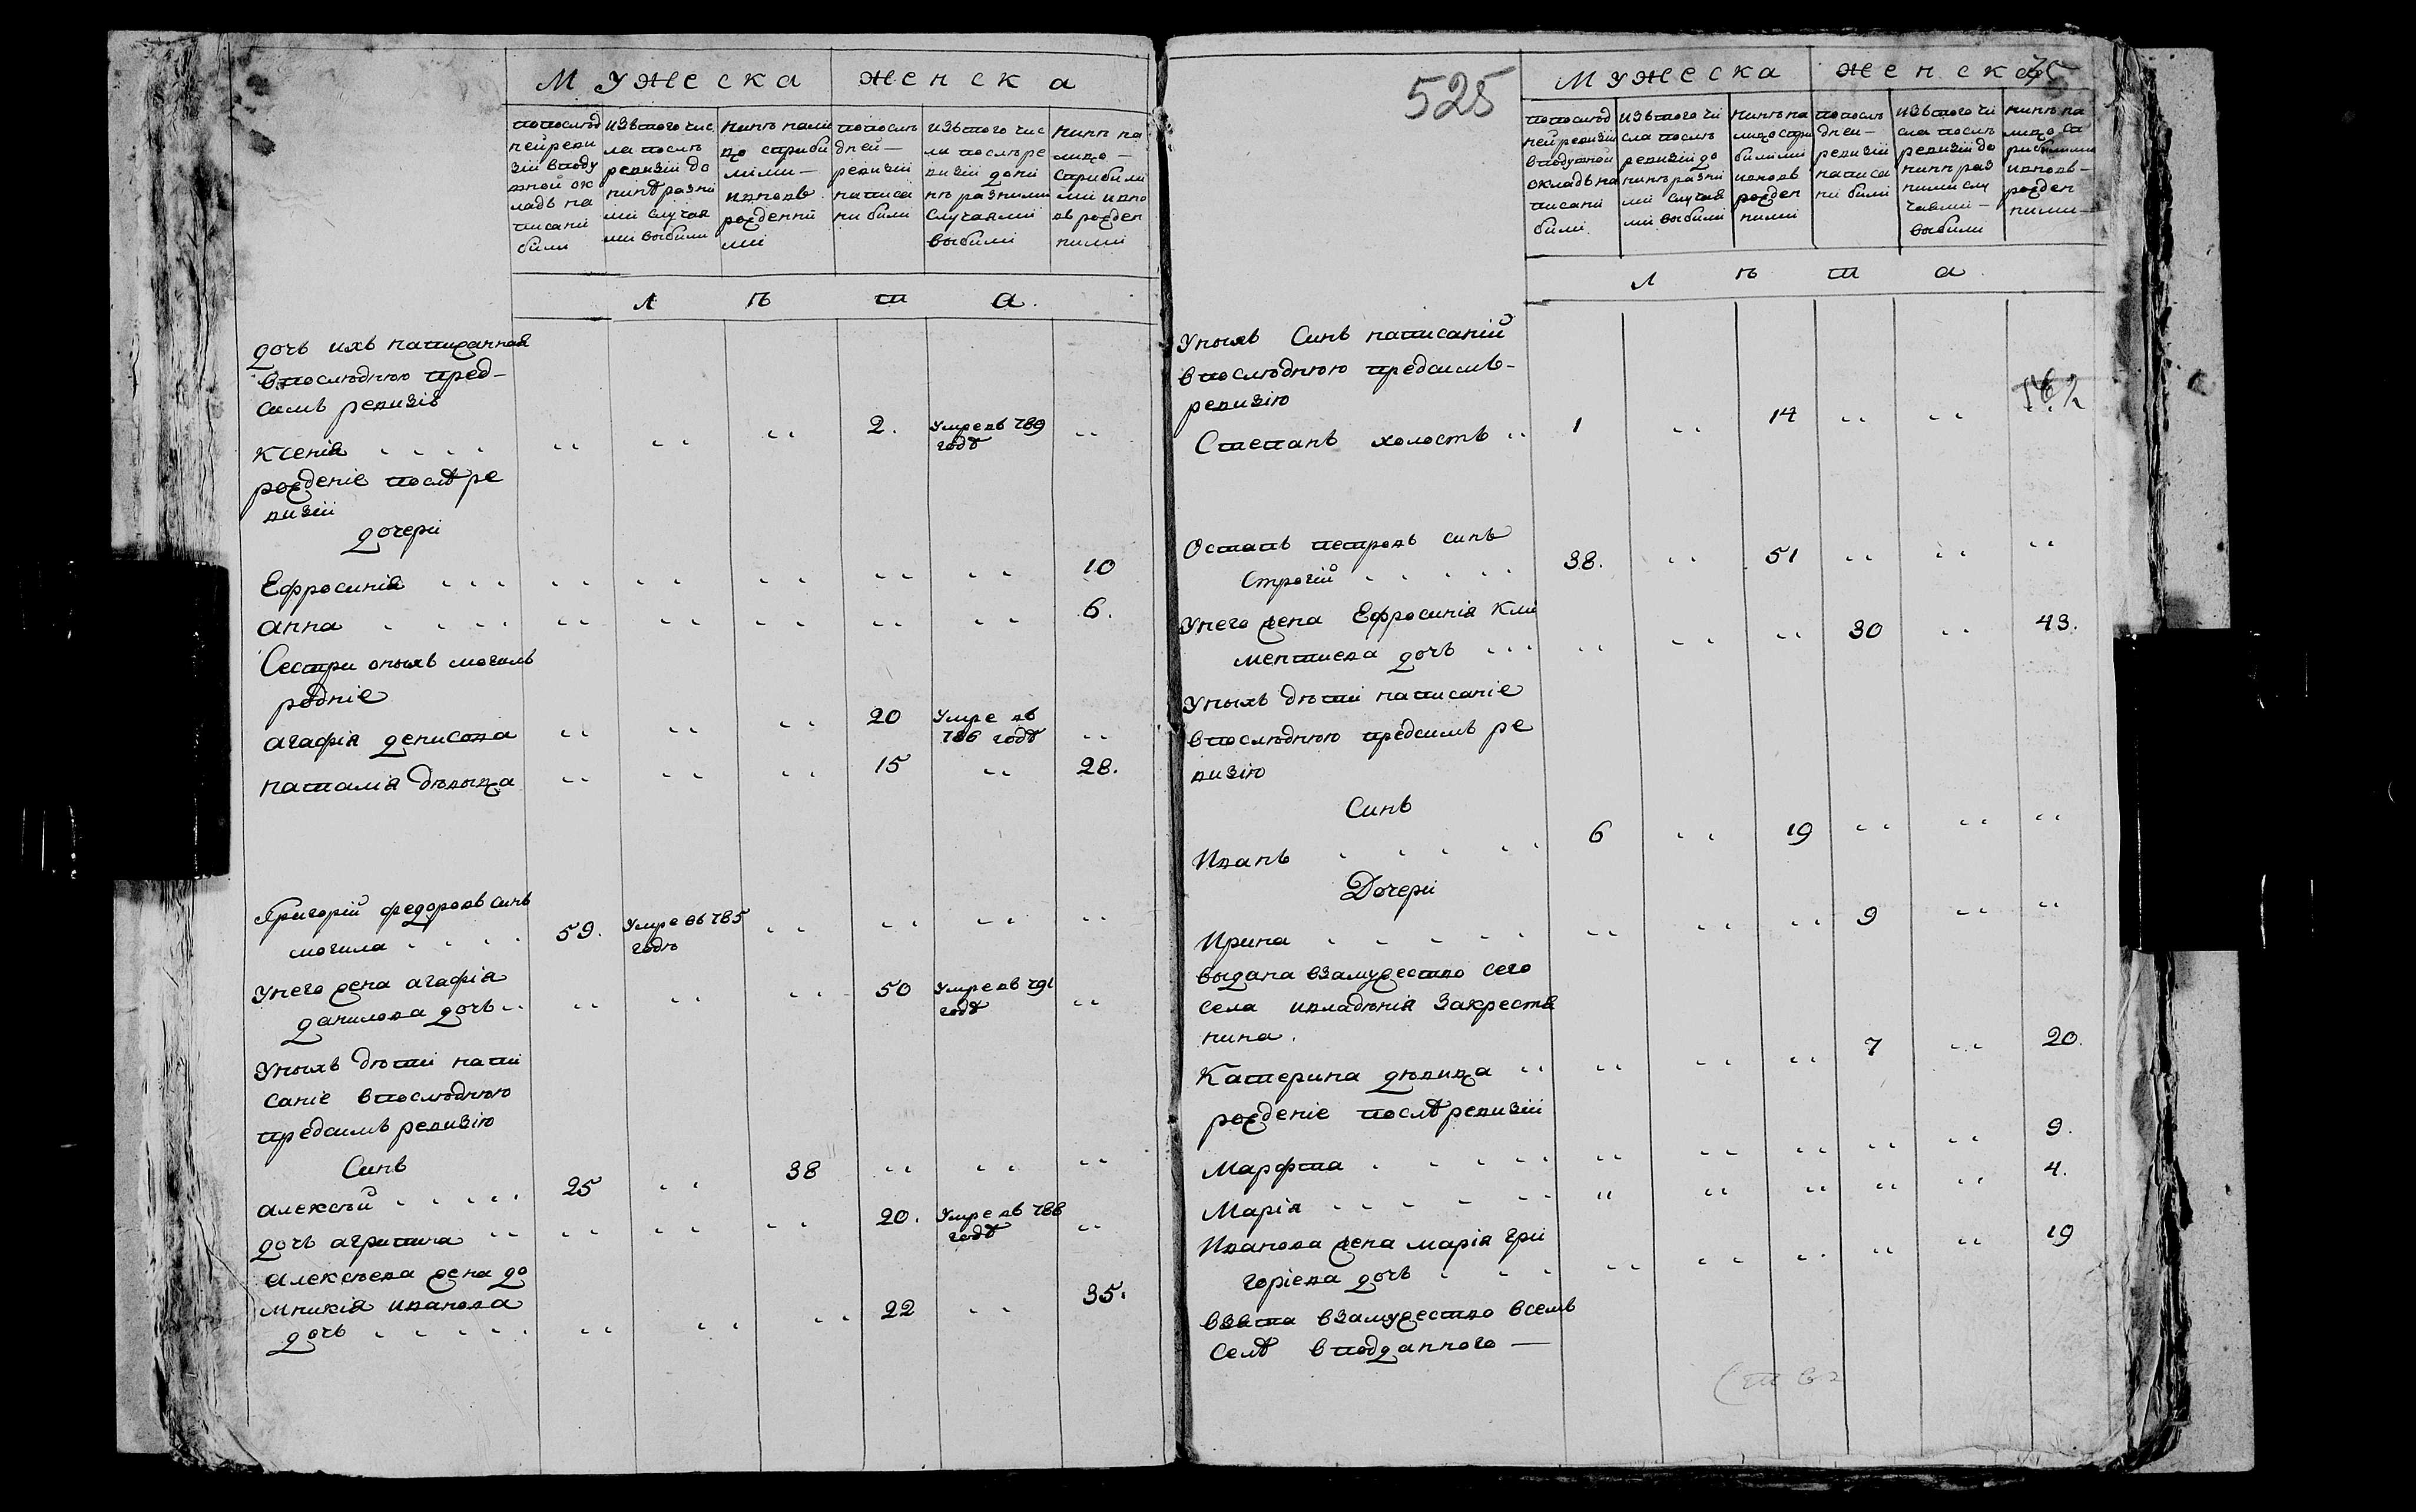 Мужеска женска
попослѣд нейреви зіи вподу шной ок ладъ на писани были
изътого чис ла послѣ ревизіи до нинѣ разни ми случая ми выбыли
нинѣ нали цо сприбы лими — ивновь рожденни ми
попослѣ дней — ревизіи написа ни были
изътого чис ла послѣ ре визіи дони нѣ разними случаями выбыли
нинѣ на лицо — сприбыли ми ивно вь рожден ними
лѣта.
дочь ихъ написанная
впослѣднюю пред-
симъ ревизів
Ксенія 2. Умре въ 789 годѣ
рожденіе послѣ ре
визіи
дочери
Ефросинія 10
анна 6.
Сестри оныхъ могилъ
родніе
агафія денисова 20 Умре въ 786 годѣ
наталія дѣвыца 15 28.
Григорій федоровъ синъ
могила 59. Умре въ 785 годѣ
Унего жена агафія
данилова дочь 50 Умре въ 791 годѣ
Уныхъ дѣти напи
саніе впослѣднюю
предсимъ ревизію
Синъ
алексѣй 25 38
дочь агрипина 20. Умре въ 788 годѣ
алексѣева жена до
мникія иванова
дочь 22 35.
525
Мужеска женска
попослѣд нейревизіи вподушной окладъ на писани были
изътого чи сла послѣ ревизіи до нинѣ разни ми случая ми выбыли
нинѣ на лицо спри былими ивновь рожден ними
попослѣ дней — ревизіи написа ни были
изътого чи сла послѣ ревизіи до нинѣ раз ними слу чаями — выбыли
нинѣ на лицо сп рибылими ивновь — рожден ними —
лѣта.
Уныхъ Синъ написаній
впослѣднюю предсимъ-
ревизію
Степанъ холостъ 1 14
Остапъ петровъ синъ
Строгій 38. 51
Унего жена Ефросинія Кли
ментиева дочь 30 43.
Уныхъ дѣти написаніе
впослѣднюю предсимъ ре
визію
Синъ
Иванъ 6 19
Дочери
Ирина 9
выдана взамужество сего
села ивладѣнія закрестя
нина.
Катерина дѣвица 7 20.
рожденіе послѣ ревизіи
Марфта 9.
Марія 4.
Иванова жена марія гри
горіева дочь 19
взята взамужество всемъ
селѣ вподданного —